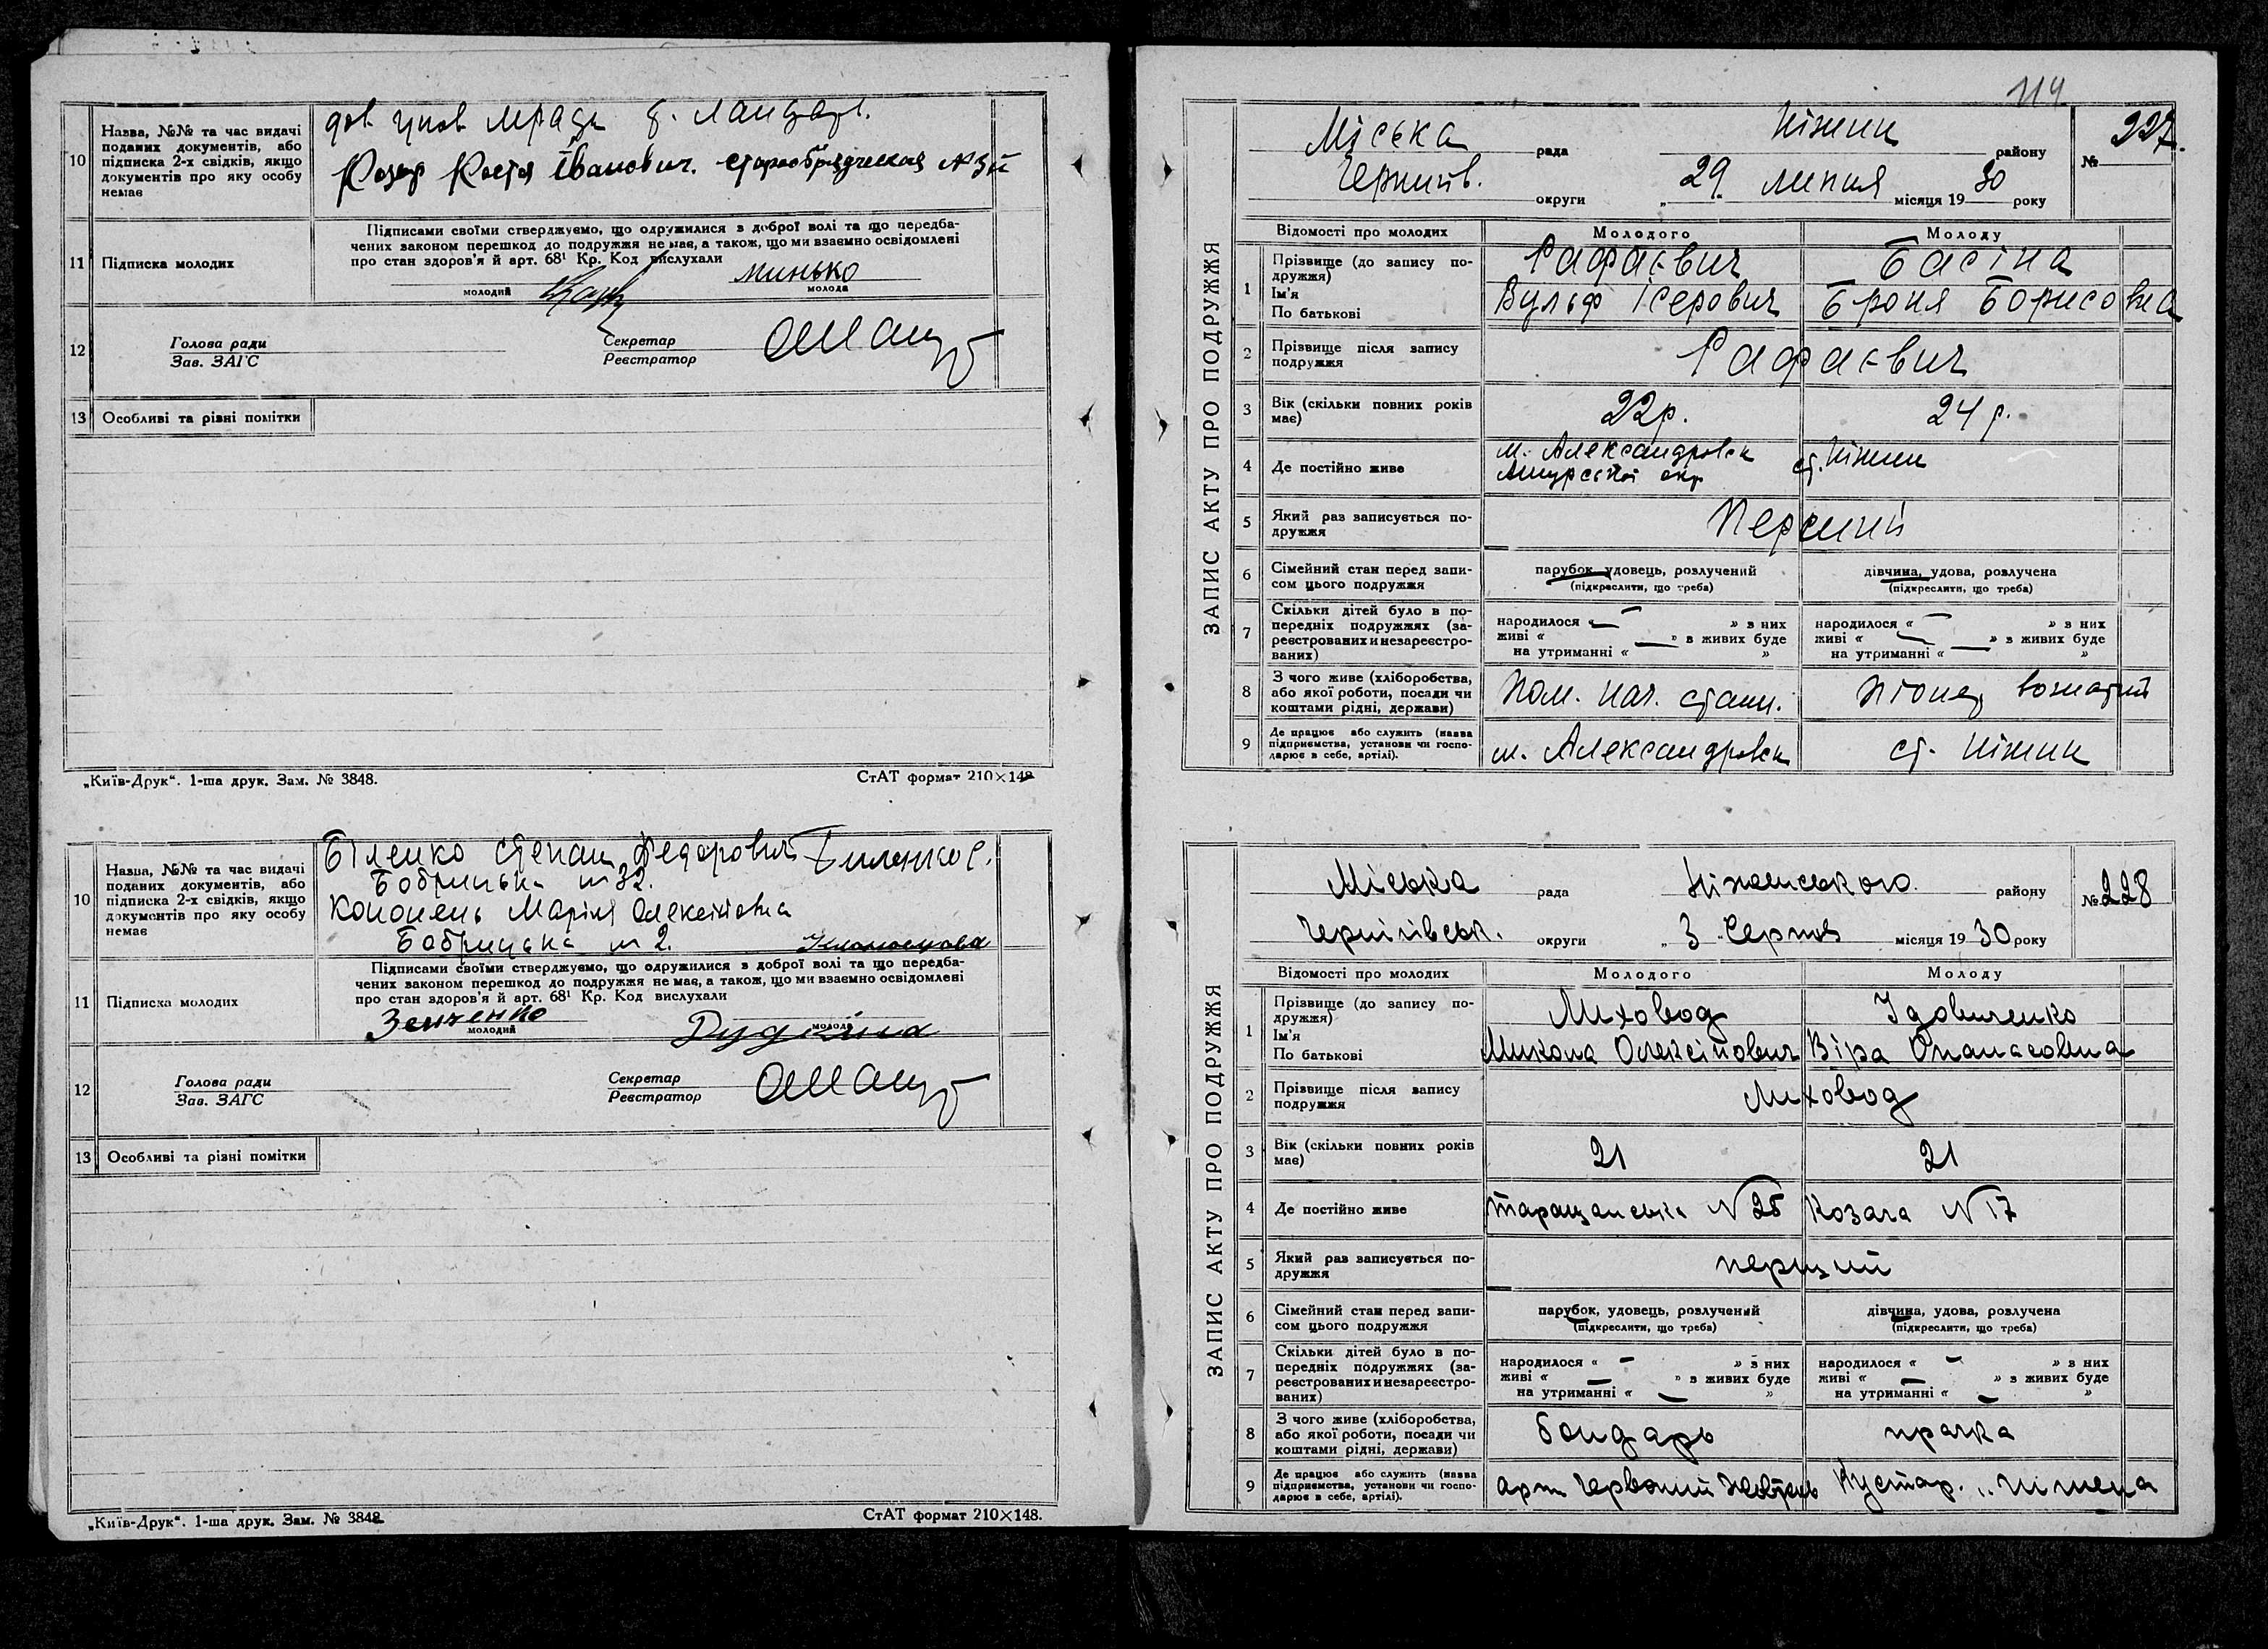 10
Назва, №№ та час видачі
поданих документів, або
підписка 2-х свідків, якщо
документів про яку особу
немає
Козар Костя Іванович. старообрядческая №3
11
Підписка молодих
Підписами своїми стверджуємо, що одружилися з доброї волі та що передба-
чених законом перешкод до подружжя не має, а також, що ми взаємно освідомлені
про стан здоров'я й арт. 68¹ Кр. Код вислухали
минько
молодий
молода
12
Голова ради
Зав. ЗАГС
Секретар
Реєстратор
13
Особливі та рівні помітки
„Київ-Друк“. 1-ша друк. Зам. № 3848.
СтАТ формат 210×148
10
Назва, №№ та час видачі
поданих документів, або
підписка 2-х свідків, якщо
документів про яку особу
немає
Біленко Степан Федорович
Бобрицька № 32.
Кононець Марія Олексіївна
Бобрицька № 2.
11
Підписка молодих
Підписами своїми стверджуємо, що одружилися з доброї волі та що передба-
чених законом перешкод до подружжя не має, а також, що ми взаємно освідомлені
про стан здоров'я й арт. 68¹ Кр. Код вислухали
Зенченко
молодий
молода
12
Голова ради
Зав. ЗАГС
Секретар
Реєстратор
13
Особливі та рівні помітки
„Київ-Друк“. 1-ша друк. Зам. № 3848
СтАТ формат 210×148.
114
ЗАПИС АКТУ ПРО ПОДРУЖЖЯ
Міська рада Ніжин району № 227.
Черниг. округи „29 липня місяця 1930 року
Відомості про молодих
Молодого
Молоду
1
Прізвище (до запису по-
дружжя)
Ім'я
По батькові
Рафаєвич
Вульф Ісерович
Басіна
Броня Борисовна
2
Прізвище після запису
подружжя
Рафаєвич
3
Вік (скільки повних років
має)
22р.
24 р.
4
Де постійно живе
м. Александровск
Амурської окр
ст. Ніжин
5
Який раз записується по-
дружжя
Перший
6
Сімейний стан перед запи-
сом цього подружжя
парубок, удовець, розлучений
(підкреслити, що треба)
дівчина, удова, розлучена
(підкреслити, що треба)
7
Скільки дітей було в по-
передніх подружжях (за-
реєстрованих и незареєстро-
ваних)
народилося « — » з них
живі « — » з живих буде
на утриманні « »
народилося « — » з них
живі « — » з живих буде
на утриманні « — »
8
З чого живе (хліборобства,
або якої роботи, посади чи
коштами рідні, держави)
Пом. нач. станц.
піонер вожатий
9
Де працює або служить (назва
підприємства, установи чи госпо-
дарює в себе, артілі).
м. Александровск
ст. Ніжин
ЗАПИС АКТУ ПРО ПОДРУЖЖЯ
Міська рада Ніженського району № 228
Чернігівськ. округи „3 Серпня місяця 1930 року
Відомості про молодих
Молодого
Молоду
1
Прізвище (до запису по-
дружжя)
Ім'я
По батькові
Лиховод
Микола Олексійович
Удовиченко
Віра Опанасовна
2
Прізвище після запису
подружжя
Лиховод
3
Вік (скільки повних років
має)
21
21
4
Де постійно живе
Таращанська №25
Козача №17
5
Який раз записується по-
дружжя
перший
6
Сімейний стан перед запи-
сом цього подружжя
парубок, удовець, розлучений
(підкреслити, що треба)
дівчина, удова, розлучена
(підкреслити, що треба)
7
Скільки дітей було в по-
передніх подружжях (за-
реєстрованих и незареєстро-
ваних)
народилося « — » з них
живі « — » з живих буде
на утриманні « — »
народилося « — » з них
живі « — » з живих буде
на утриманні « — »
8
З чого живе (хліборобства,
або якої роботи, посади чи
коштами рідні, держави)
бондарь
прачка
9
Де працює або служить (назва
підприємства, установи чи госпо-
дарює в себе, артілі).
арт Червоний Жовтень
Кустар.